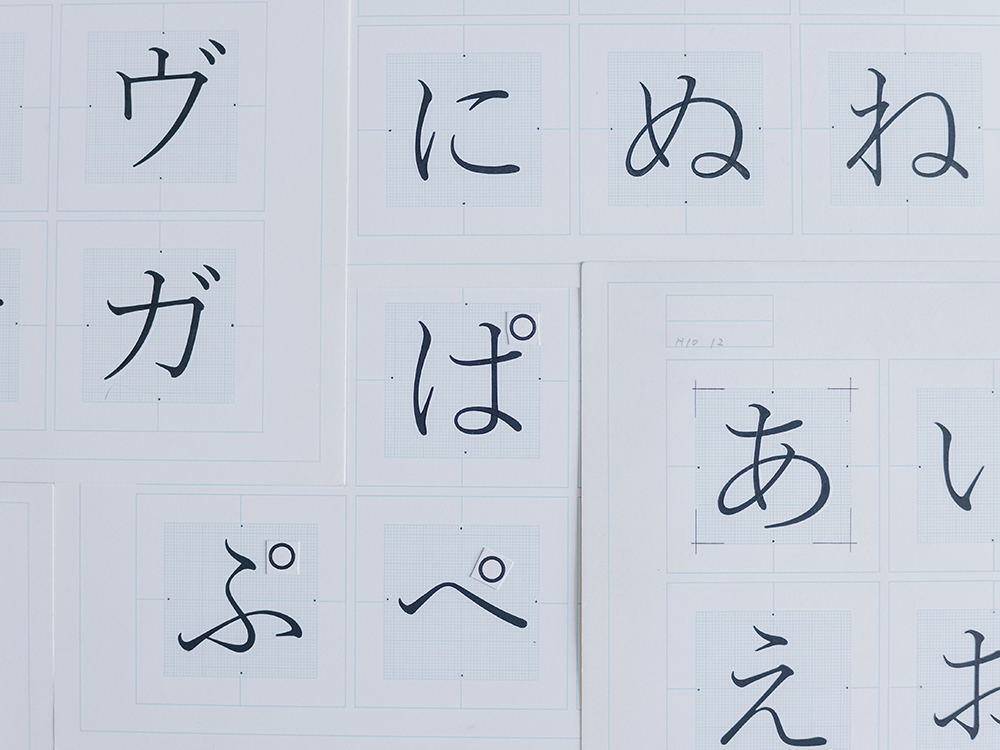 ヴ
ガ
にぬね
ぱ
ぷぺ
N10 12
あい
えお